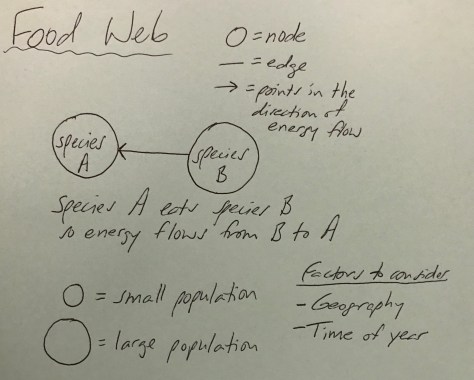 Food Web
= node
= edge
→ = points in the
direction of
energy flow
species
A
species
B
Species A eats species B
so energy flows from B to A
= small population
= large population
Factors to consider
- Geography
- Time of year